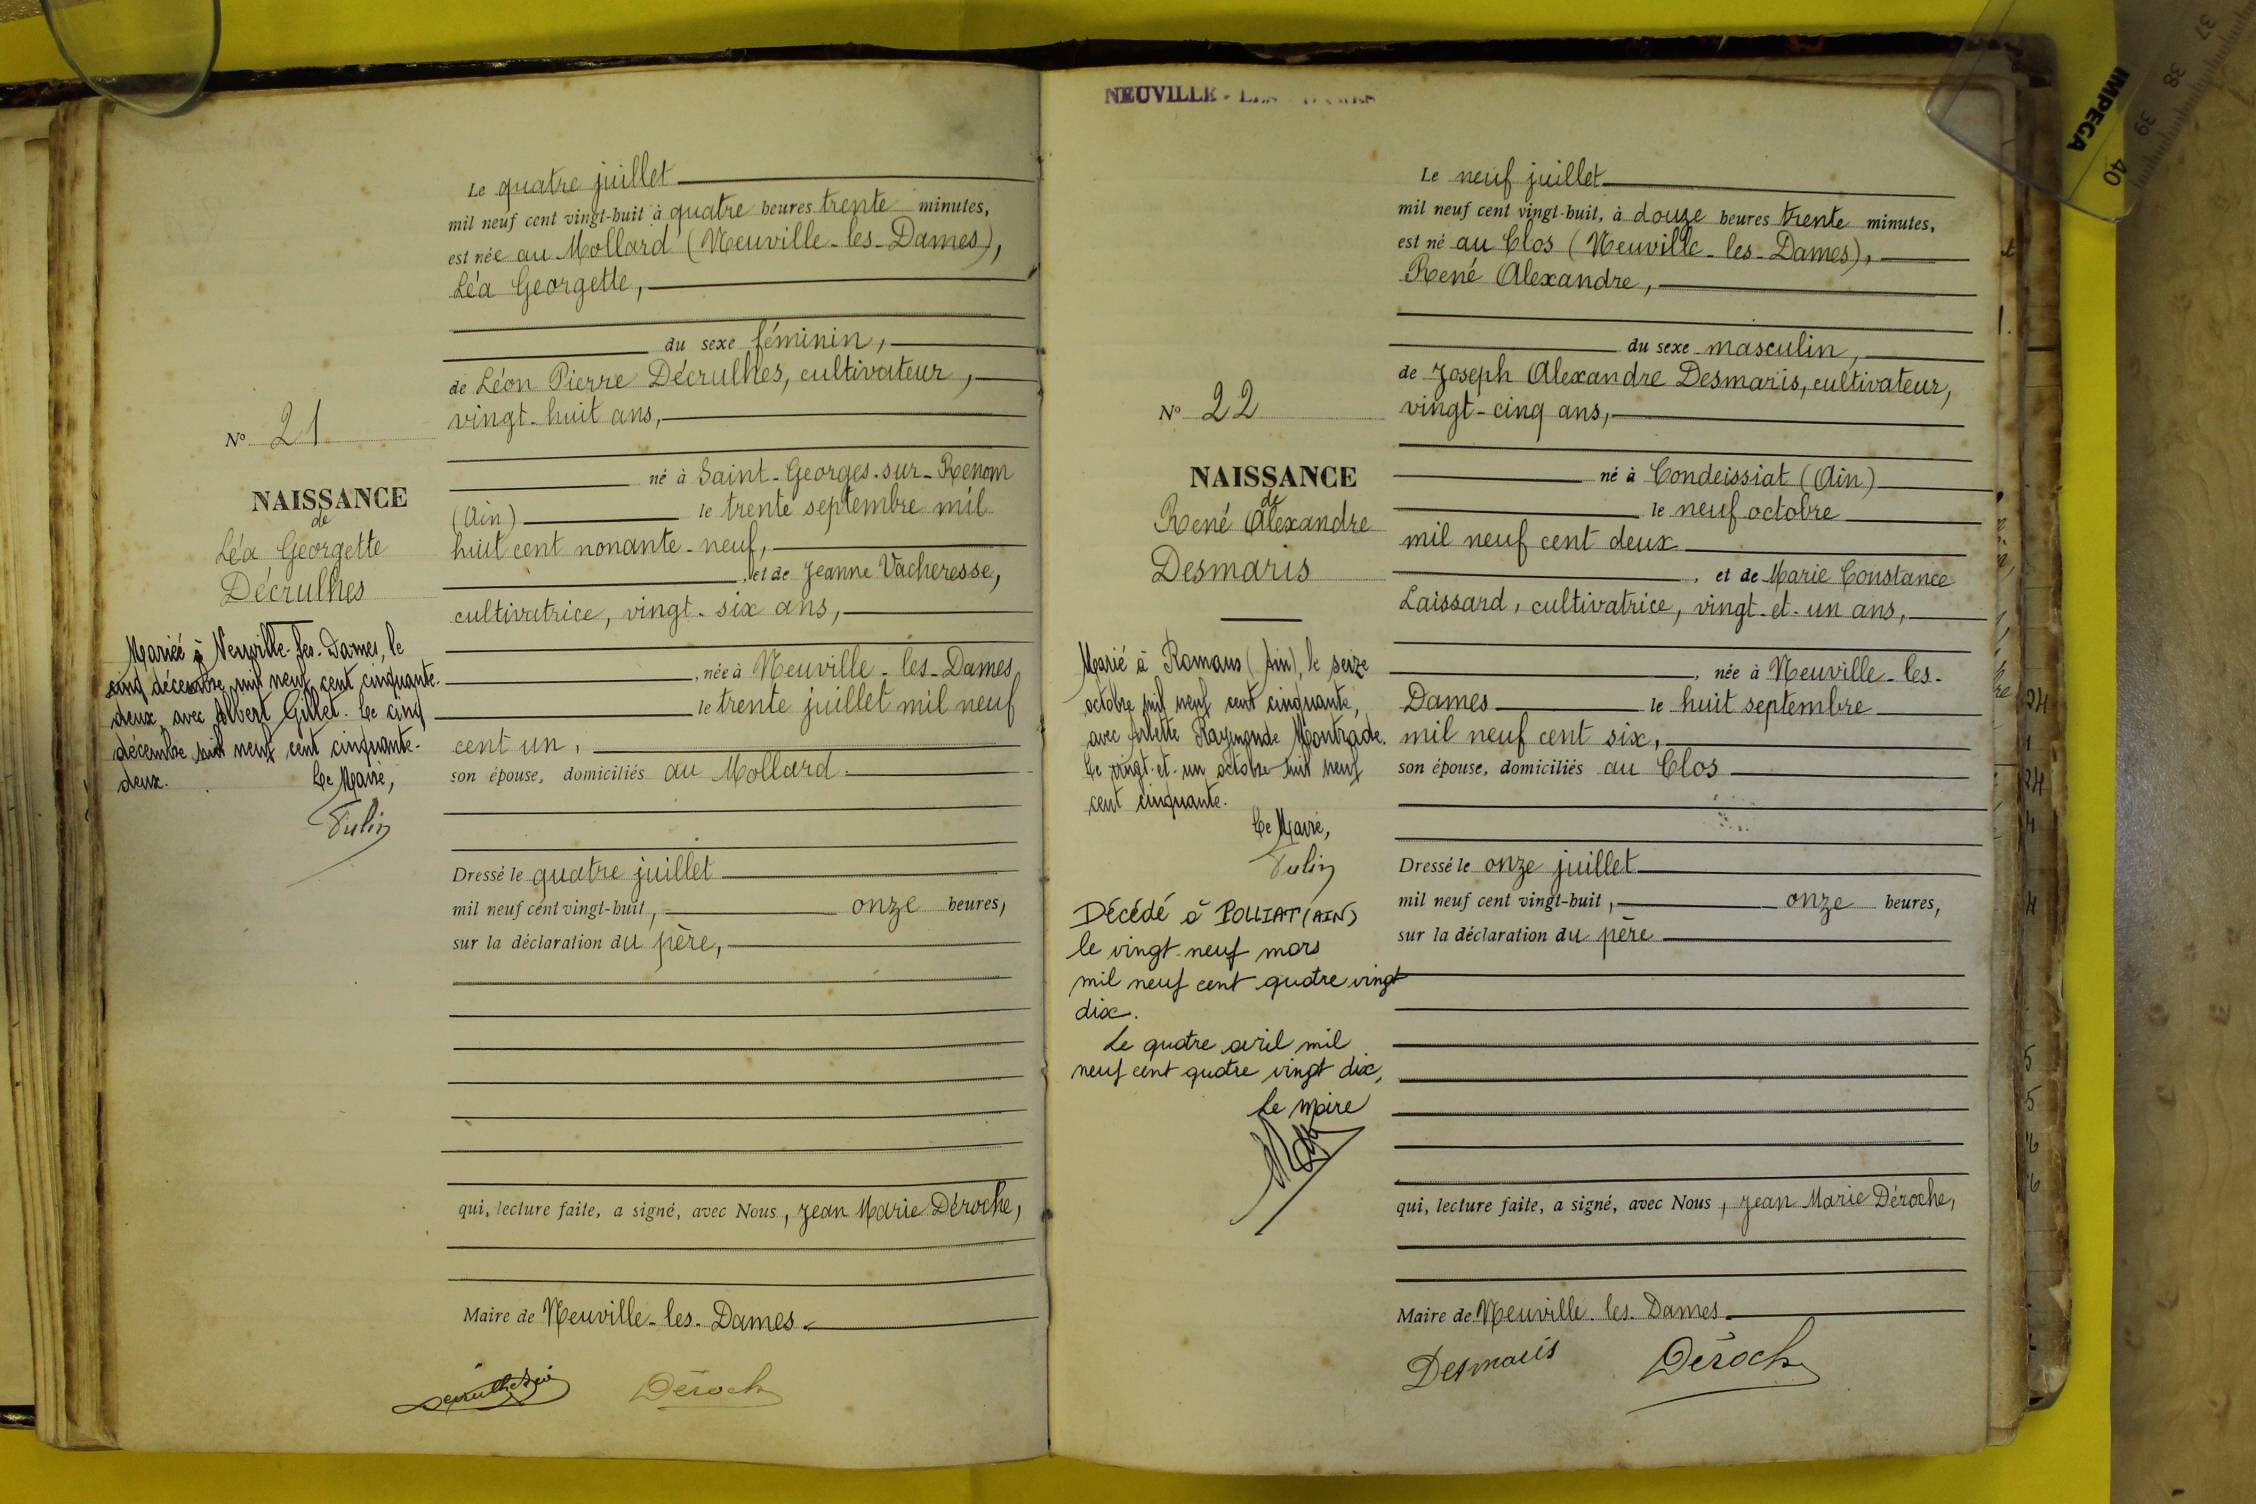 Le quatre juillet
mil neuf cent vingt-huit à quatre heures trente minutes,
est née au Mollard (Neuville-les-Dames),
Léa Georgette,
du sexe féminin,
de Léon Pierre Décrulhes, cultivateur,
vingt-huit ans,
né à Saint-Georges-sur-Renom
(Ain) le trente septembre mil
huit cent nonante-neuf,
, et de Jeanne Vacheresse,
cultivatrice, vingt-six ans,
, née à Neuville-les-Dames
le trente juillet mil neuf
cent un,
son épouse, domiciliés au Mollard.
Dressé le quatre juillet
mil neuf cent vingt-huit, onze heures,
sur la déclaration du père,
qui, lecture faite, a signé, avec Nous, Jean Marie Déroche,
Maire de Neuville-les-Dames.
Déroche
N° 21
NAISSANCE
de
Léa Georgette
Décrulhes
Mariée à Neuville-les-Dames, le
cinq décembre mil neuf cent cinquante-
deux avec Albert Gillet. Le cinq
décembre mil neuf cent cinquante-
deux.
Le Maire,
NEUVILLE-LES-DAMES
Le neuf juillet
mil neuf cent vingt-huit, à douze heures trente minutes,
est né au Clos (Neuville-les-Dames),
René Alexandre,
du sexe masculin,
de Joseph Alexandre Desmaris, cultivateur,
vingt-cinq ans,
né à Condeissiat (Ain)
le neuf octobre
mil neuf cent deux
, et de Marie Constance
Laissard, cultivatrice, vingt-et-un ans,
, née à Neuville-les-
Dames le huit septembre
mil neuf cent six,
son épouse, domiciliés au Clos
Dressé le onze juillet
mil neuf cent vingt-huit, onze heures,
sur la déclaration du père
qui, lecture faite, a signé, avec Nous, Jean Marie Déroche,
Maire de Neuville-les-Dames.
Desmaris Déroche
N° 22
NAISSANCE
de
René Alexandre
Desmaris
Marié à Romans (Ain), le seize
octobre mil neuf cent cinquante,
avec Arlette Raymonde Montrade.
Le vingt-et-un octobre mil neuf
cent cinquante.
Le Maire,
Décédé à POLLIAT (AIN)
le vingt-neuf mars
mil neuf cent quatre vingt
dix.
Le quatre avril mil
neuf cent quatre vingt dix,
Le maire
IMPEGA
37
38
39
40